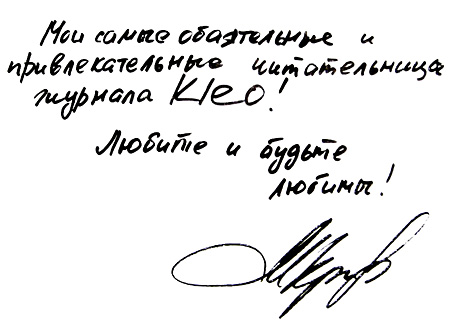 Мои самые обаятельные и
привлекательные читательницы
журнала Kleo!
Любите и будьте
любимы!